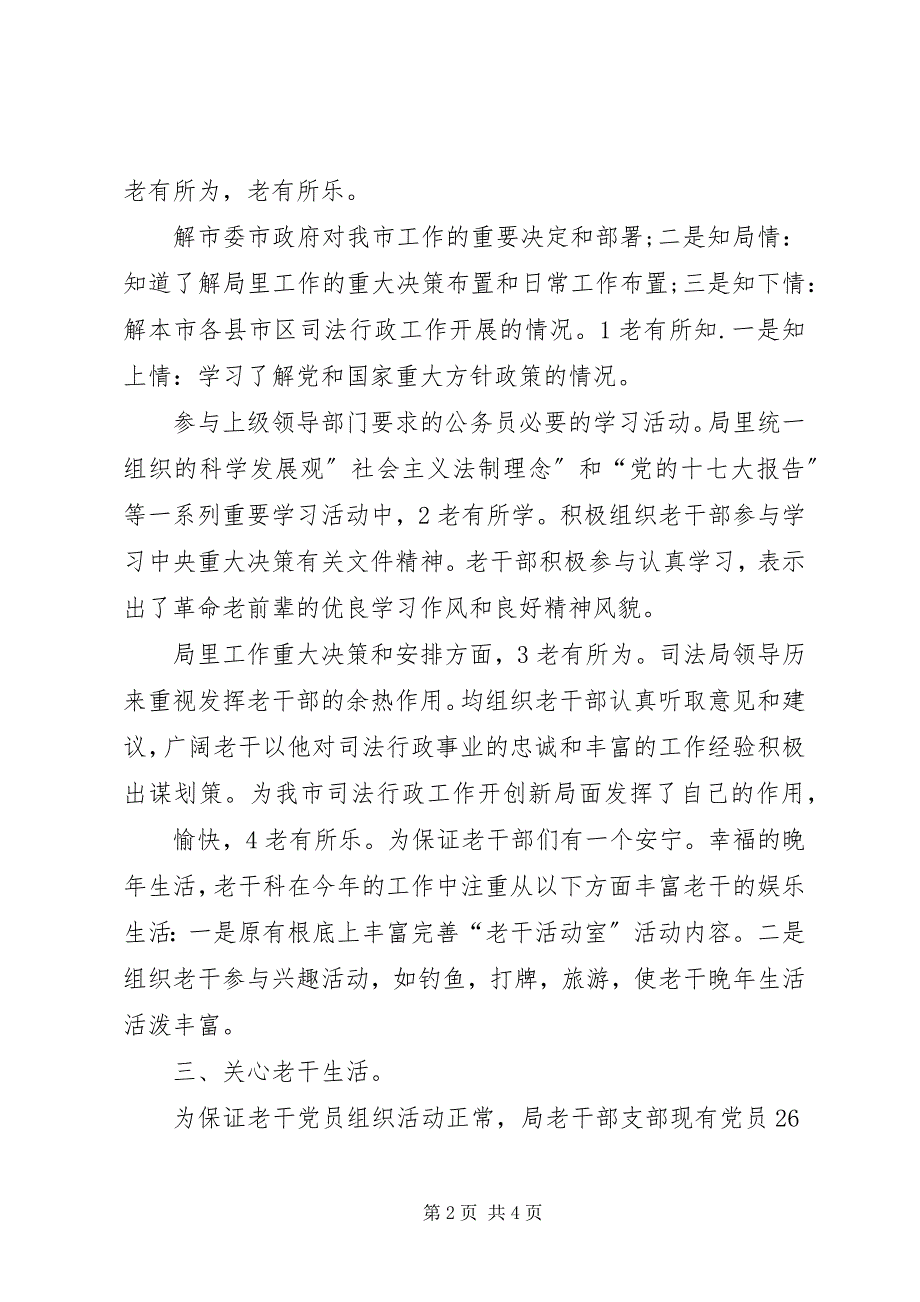 老有所为，老有所乐。
解市委市政府对我市工作的重要决定和部署;二是知局情：
知道了解局里工作的重大决策布置和日常工作布置;三是知下情：
解本市各县市区司法行政工作开展的情况。1 老有所知.一是知
上情：学习了解党和国家重大方针政策的情况。
参与上级领导部门要求的公务员必要的学习活动。局里统一
组织的科学发展观〞社会主义法制理念〞和“党的十七大报告〞
等一系列重要学习活动中，2 老有所学。积极组织老干部参与学
习中央重大决策有关文件精神。老干部积极参与认真学习，表示
出了革命老前辈的优良学习作风和良好精神风貌。
局里工作重大决策和安排方面，3 老有所为。司法局领导历
来重视发挥老干部的余热作用。均组织老干部认真听取意见和建
议，广阔老干以他对司法行政事业的忠诚和丰富的工作经验积极
出谋划策。为我市司法行政工作开创新局面发挥了自己的作用，
愉快，4 老有所乐。为保证老干部们有一个安宁。幸福的晚
年生活，老干科在今年的工作中注重从以下方面丰富老干的娱乐
生活：一是原有根底上丰富完善“老干活动室〞活动内容。二是
组织老干参与兴趣活动，如钓鱼，打牌，旅游，使老干晚年生活
活泼丰富。
三、关心老干生活。
为保证老干党员组织活动正常，局老干部支部现有党员 26
第 2 页 共 4 页